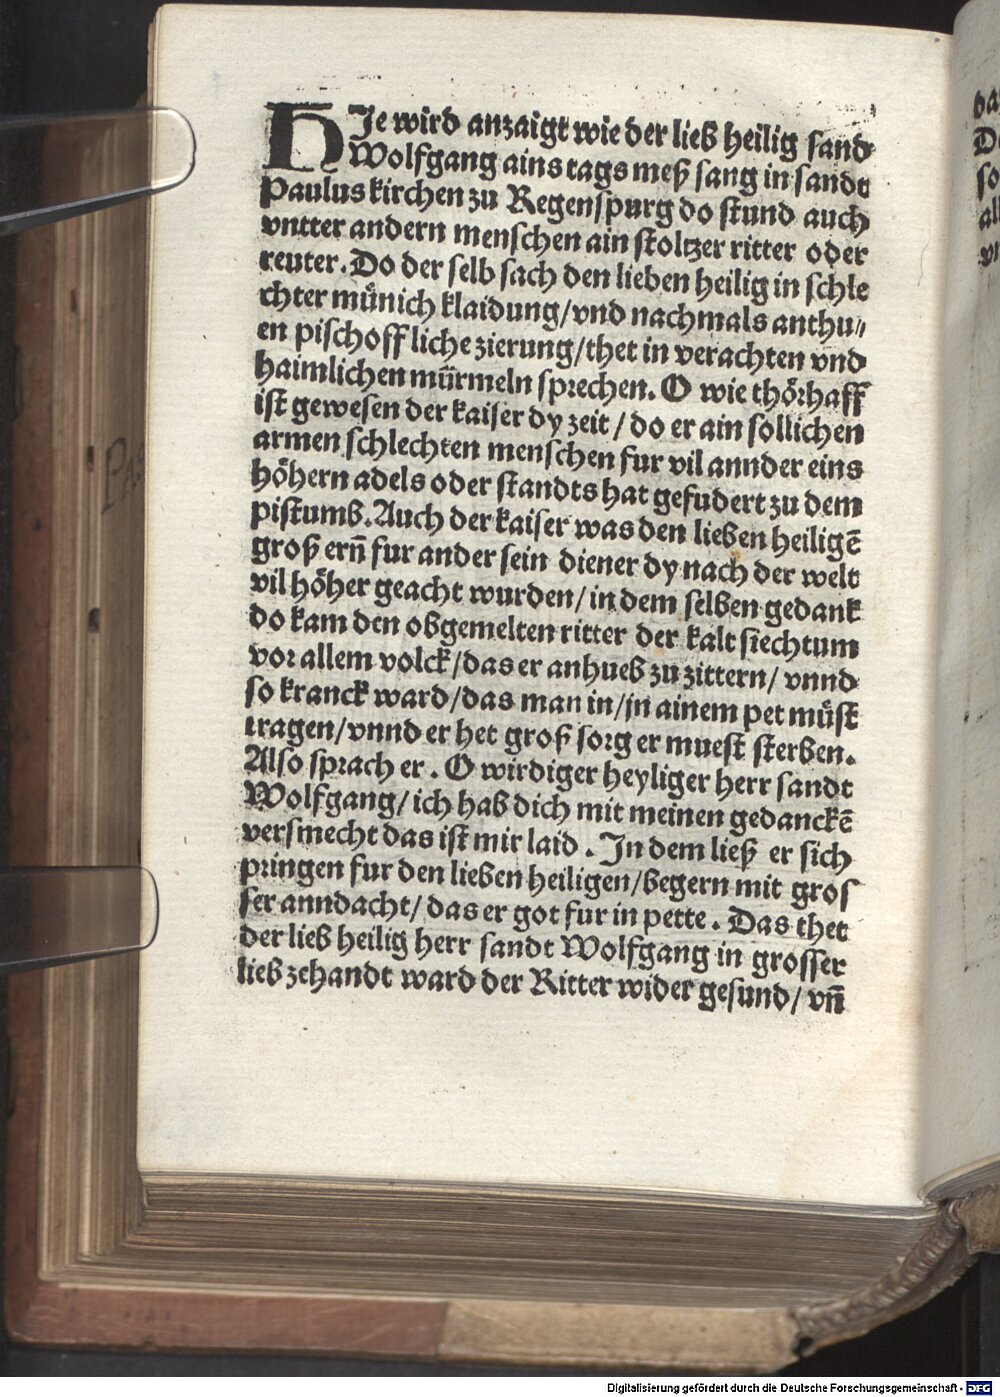 HIe wird anzaigt wie der lieb heilig sand
Wolfgang ains tags meß sang in sandt
Paulus kirchen zu Regenspurg do stund auch
vntter andern menschen ain stoltzer ritter oder
reuter. Do der selb sach den lieben heilig in schle
chter můnich klaidung/ vnd nachmals anthu⸗
en pischoff liche zierung/ thet in verachten vnd
haimlichen můrmeln sprechen. O wie thörhaff
ist gewesen der kaiser dy zeit / do er ain sollichen
armen schlechten menschen fur vil annder eins
höhern adels oder standts hat gefudert zu dem
pistumb. Auch der kaiser was den lieben heiligē
groß ern̄ fur ander sein diener dy nach der welt
vil höher geacht wurden/ in dem selben gedank
do kam den obgemelten ritter der kalt siechtum
vor allem volck/ das er anhueb zu zittern/ vnnd
so kranck ward/ das man in/ in ainem pet můst
tragen/ vnnd er het groß sorg er muest sterben.
Also sprach er. O wirdiger heyliger herr sandt
Wolfgang/ ich hab dich mit meinen gedanckē
versmecht das ist mir laid. In dem ließ er sich
pringen fur den lieben heiligen/ begern mit gros
ser anndacht/ das er got fur in pette. Das thet
der lieb heilig herr sandt Wolfgang in grosser
lieb zehandt ward der Ritter wider gesund/ vn̄
da
so
al
PAS
Digitalisierung gefördert durch die Deutsche Forschungsgemeinschaft - DFG